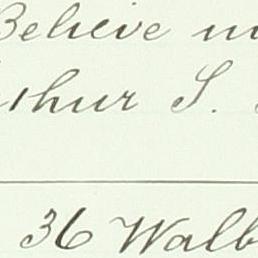 Believe m
thur S.
36 Walb